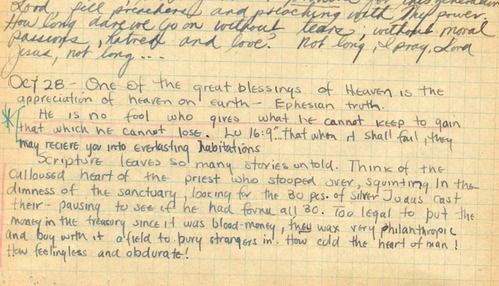 Lord, fill preachers and preaching with Thy power.
How long dare we go on without tears, without moral
passions, hatred and love? Not long, I pray, Lord
Jesus, not long...
Oct 28 - One of the great blessings of Heaven is the
appreciation of heaven on earth - Ephesian truth.
He is no fool who gives what he cannot keep to gain
that which he cannot lose. Lu 16:9 "...That when it shall fail, they
may recieve you into everlasting habitations
Scripture leaves so many stories untold. Think of the
calloused heart of the priest who stooped over, squinting in the
dimness of the sanctuary, looking for the 30 pcs. of silver Judas cast
there - pausing to see if he had found all 30. Too legal to put the
money in the treasury since it was blood-money, they wax very philanthropic
and buy with it a field to bury strangers in. How cold the heart of man!
How feelingless and obdurate!